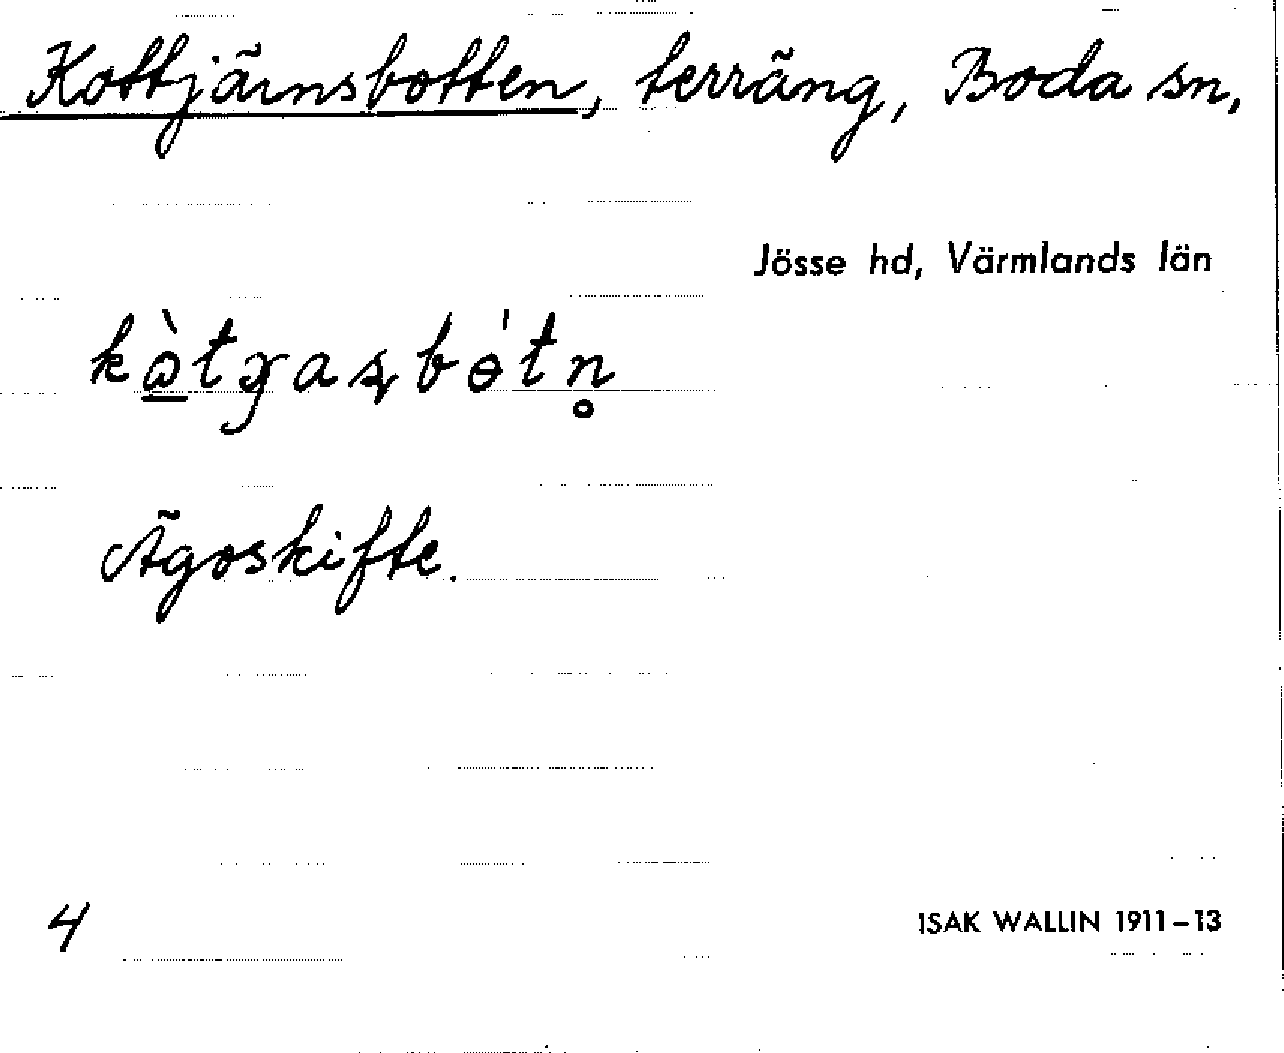 Kottjärnsbotten, terräng, Boda sn,
Jösse hd, Värmlands län
Ägoskifte.
4
ISAK WALLIN 1911–13